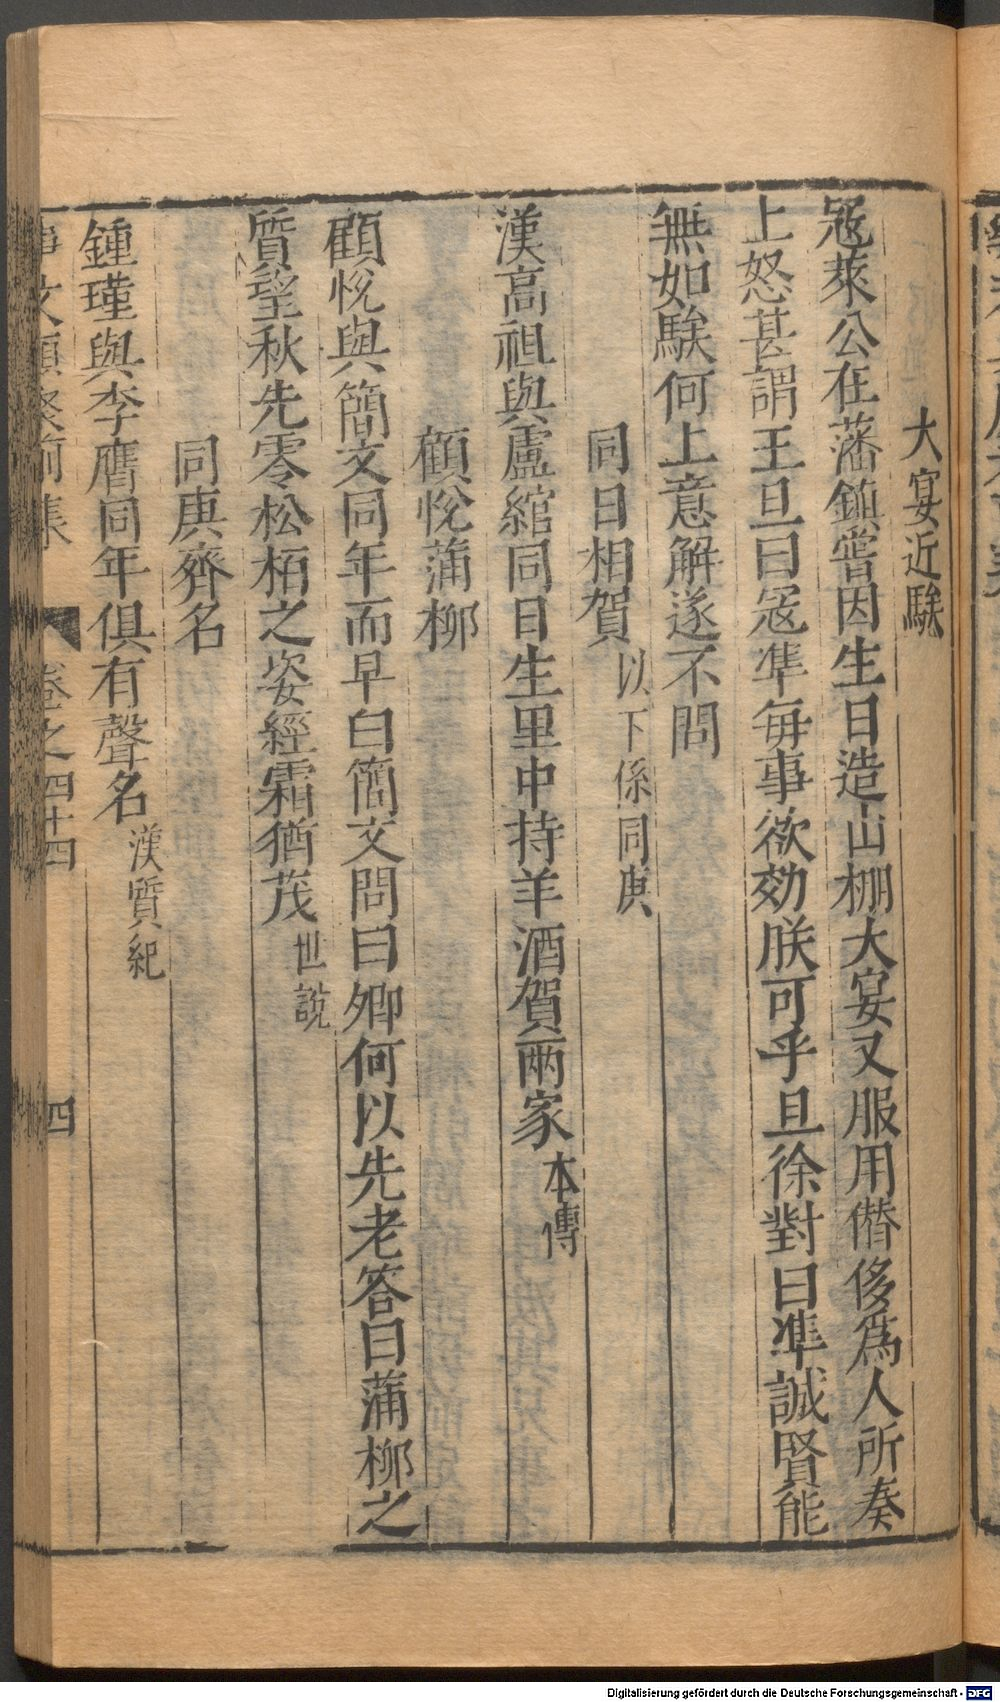 大宴近騃
冦萊公在藩鎮嘗因生日造山棚大宴又服用僣侈爲人所奏
上怒甚謂王旦曰冦凖每事欲効朕可乎旦徐對曰凖誠賢能
無如騃何上意解遂不問
同日相賀以下係同庚
漢高祖與盧綰同日生里中持羊酒賀兩家本傳
顧悅蒲柳
顧悅與簡文同年而早白簡文問曰卿何以先老答曰蒲柳之
質望秋先零松栢之姿經霜猶茂世說
同庚齊名
鍾瑾與李膺同年俱有聲名漢質紀
事文類聚前集 卷之四十四 四
Digitalisierung gefördert durch die Deutsche Forschungsgemeinschaft - DFG